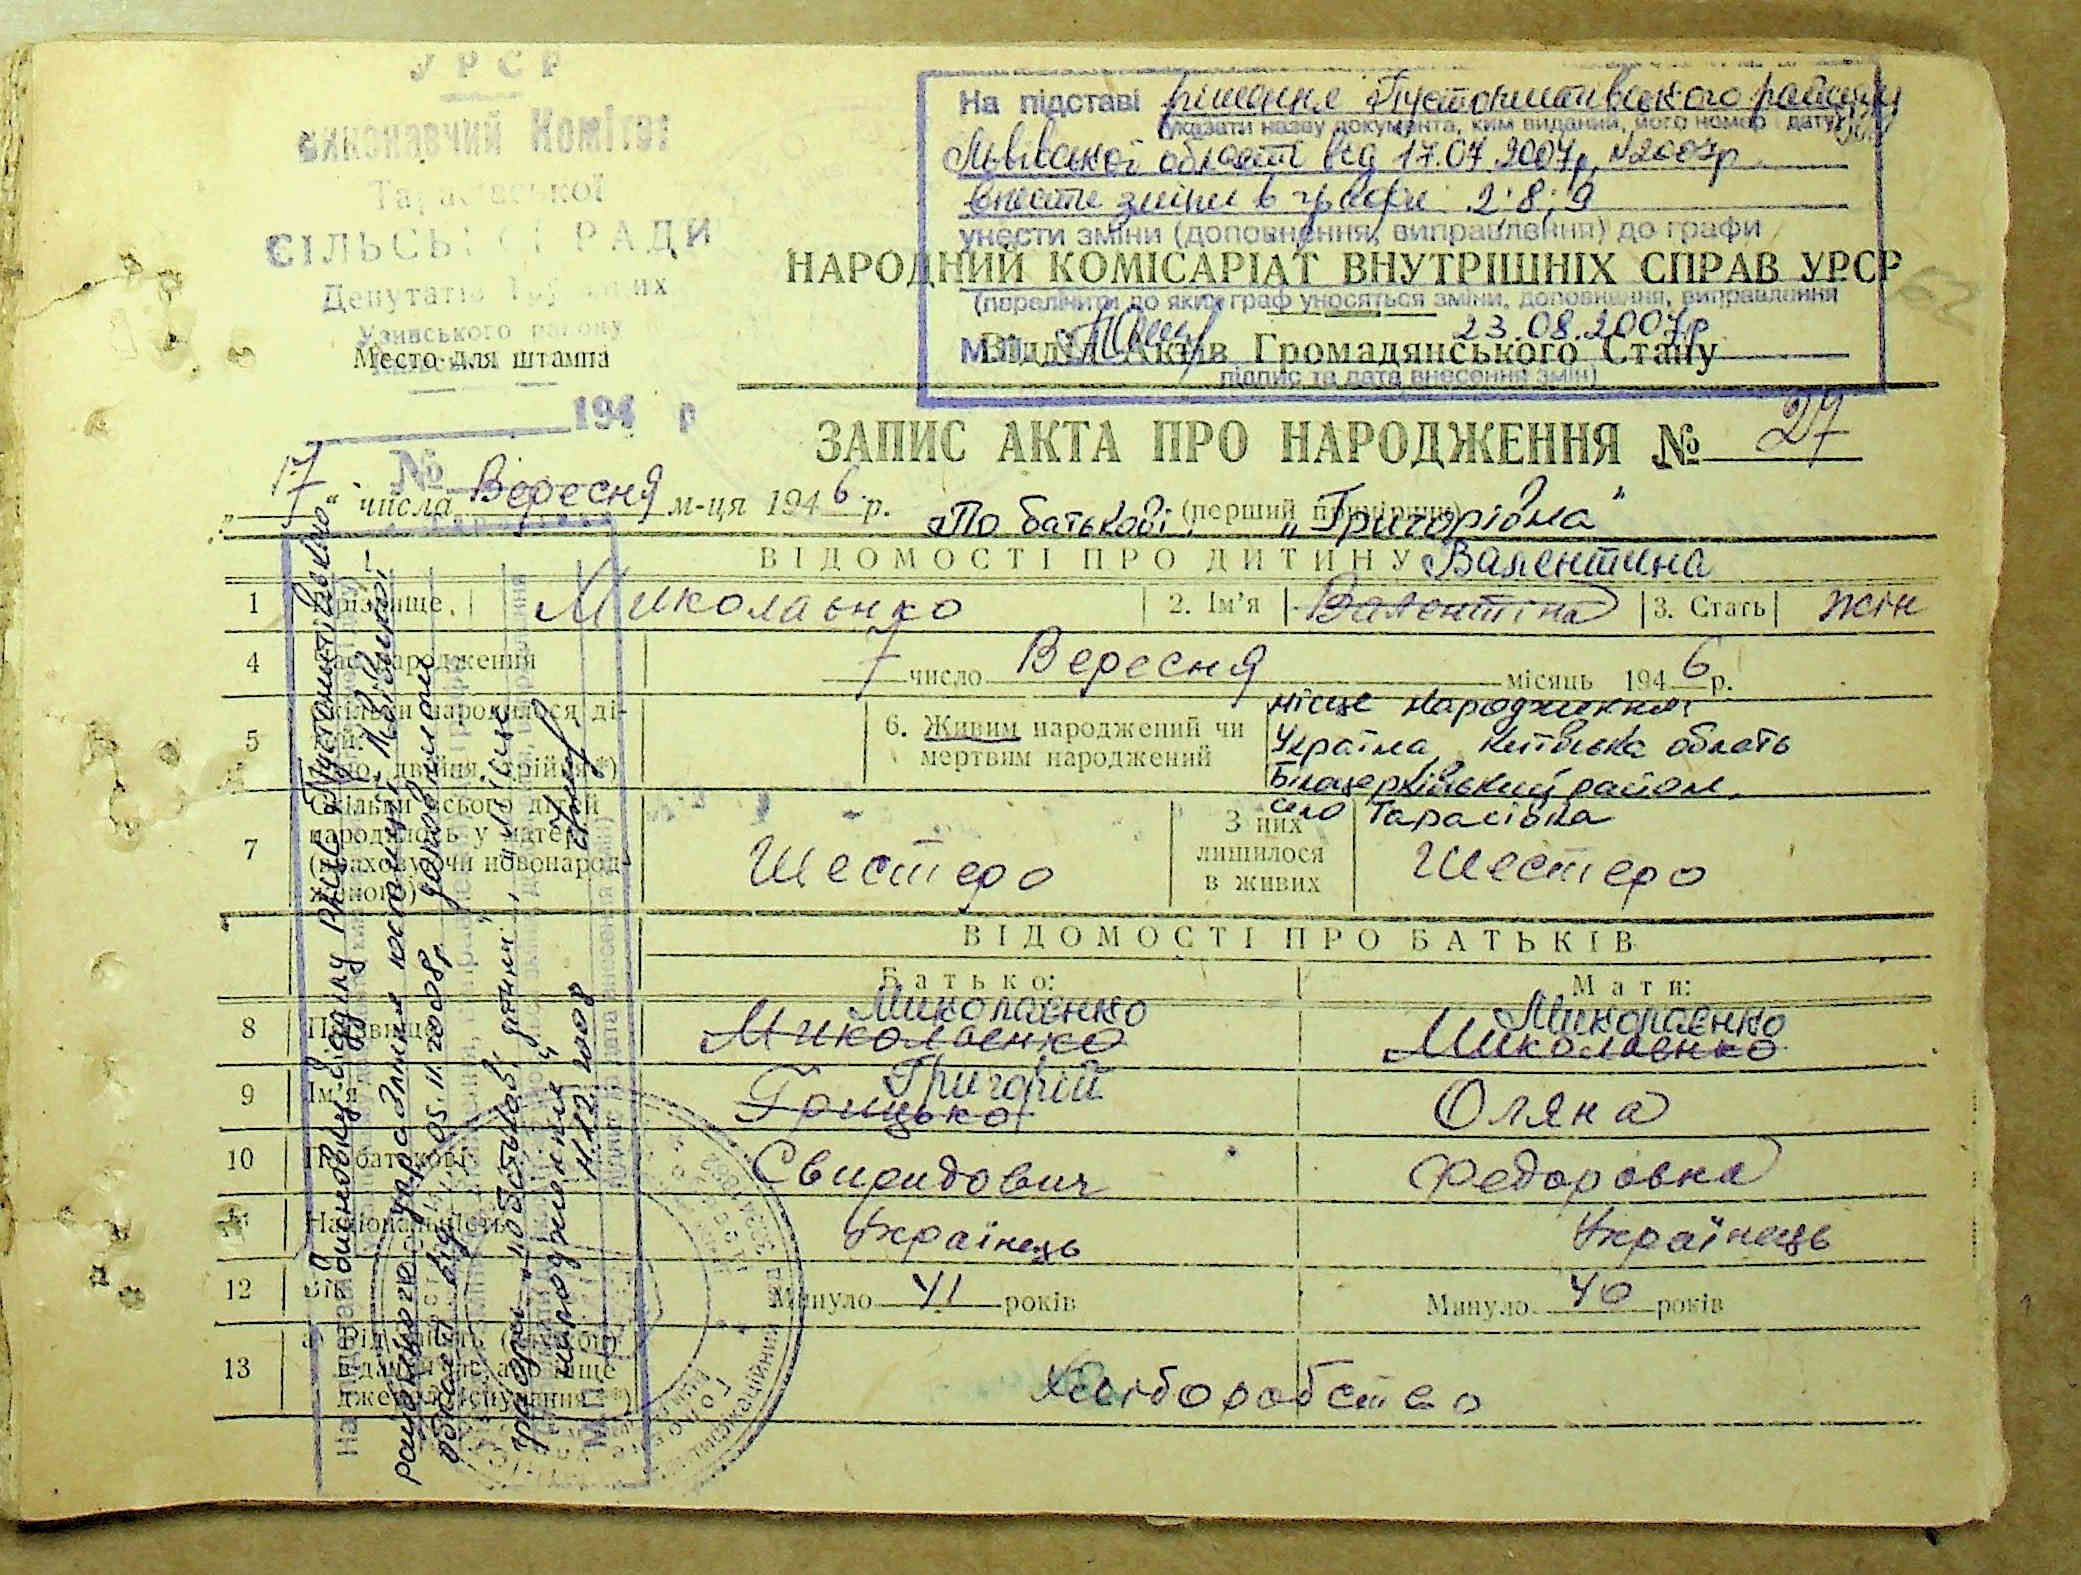 УРСР
виконавчий Комітет
Тарасівської
СІЛЬСЬКОЇ РАДИ
Депутатів Трудящих
Узинського району
Место для штампа
194 р
№
На підставі рішення Пустомитівського райсуду
(указати назву документа, ким виданий, його номер дату)
Львівської області від 17.07.2007р. №2007р
внести зміни в графи 2; 8; 9
унести зміни (доповнення, виправлення) до графи
НАРОДНИЙ КОМІСАРІАТ ВНУТРІШНІХ СПРАВ УРСР
(перелічити до яких граф уносяться зміни, доповнення, виправлення
23.08.2007р
Відділ Актів Громадянського Стану
підпис та дата внесення змін)
ЗАПИС АКТА ПРО НАРОДЖЕННЯ № 27
„17“ числа Вересня м-ця 1946 р.
(перший примірник)
„По батькові: „Григорівна“
ВІДОМОСТІ ПРО ДИТИНУ Валентина
1 Прізвище Миколаєнко 2. Ім'я Валентіна 3. Стать жін
4 Час народження 7 число Вересня місяць 1946 р.
5 Скільки народилося дітей: (одно, двійня, трійня*)
6. Живим народжений чи мертвим народжений
місце народження:
Україна, Київська область
Білоцерківський район,
село Тарасівка
7 Скільки всього дітей народилось у матері (враховуючи новонародженого) Шестеро З них лишилося в живих Шестеро
ВІДОМОСТІ ПРО БАТЬКІВ
Батько: Мати:
Миколаєнко Миколаєнко
8 Прізвище Миколаенко Миколаенко
Григорій
9 Ім'я Грицько Оляна
10 По батькові Свиридович Федоровна
11 Національність Українець Українець
12 Вік Минуло 41 років Минуло 40 років
13 Хліборобство
На підставі висновку відділу РАЦС Пустомитівського
районного управління юстиції Львівської
області від 05.11.2008р. доповнити
графи „по батькові дитини“, „місце
народження“
М.П. 11.12.2008